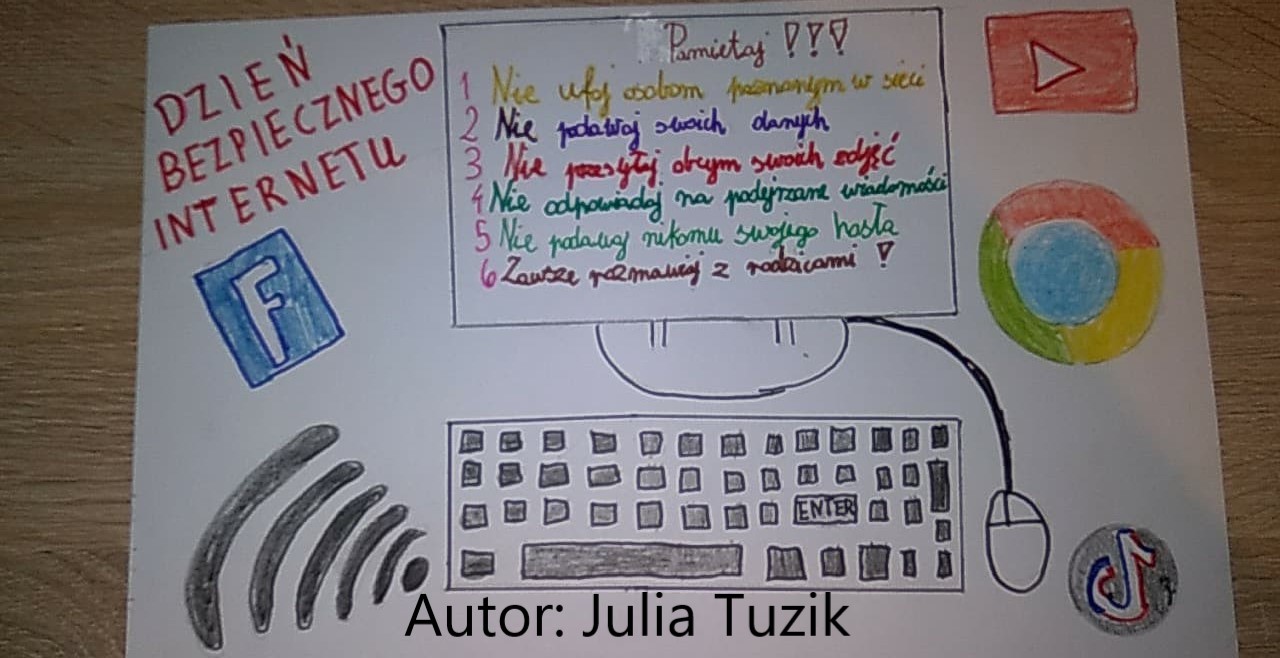 DZIEŃ
BEZPIECZNEGO
INTERNETU
Pamiętaj !!!
1 Nie ufaj osobom poznanym w sieci
2 Nie podawaj swoich danych
3 Nie przesyłaj obcym swoich zdjęć
4 Nie odpowiadaj na podejrzane wiadomości
5 Nie podawaj nikomu swojego hasła
6 Zawsze rozmawiaj z rodzicami !
F
ENTER
Autor: Julia Tuzik